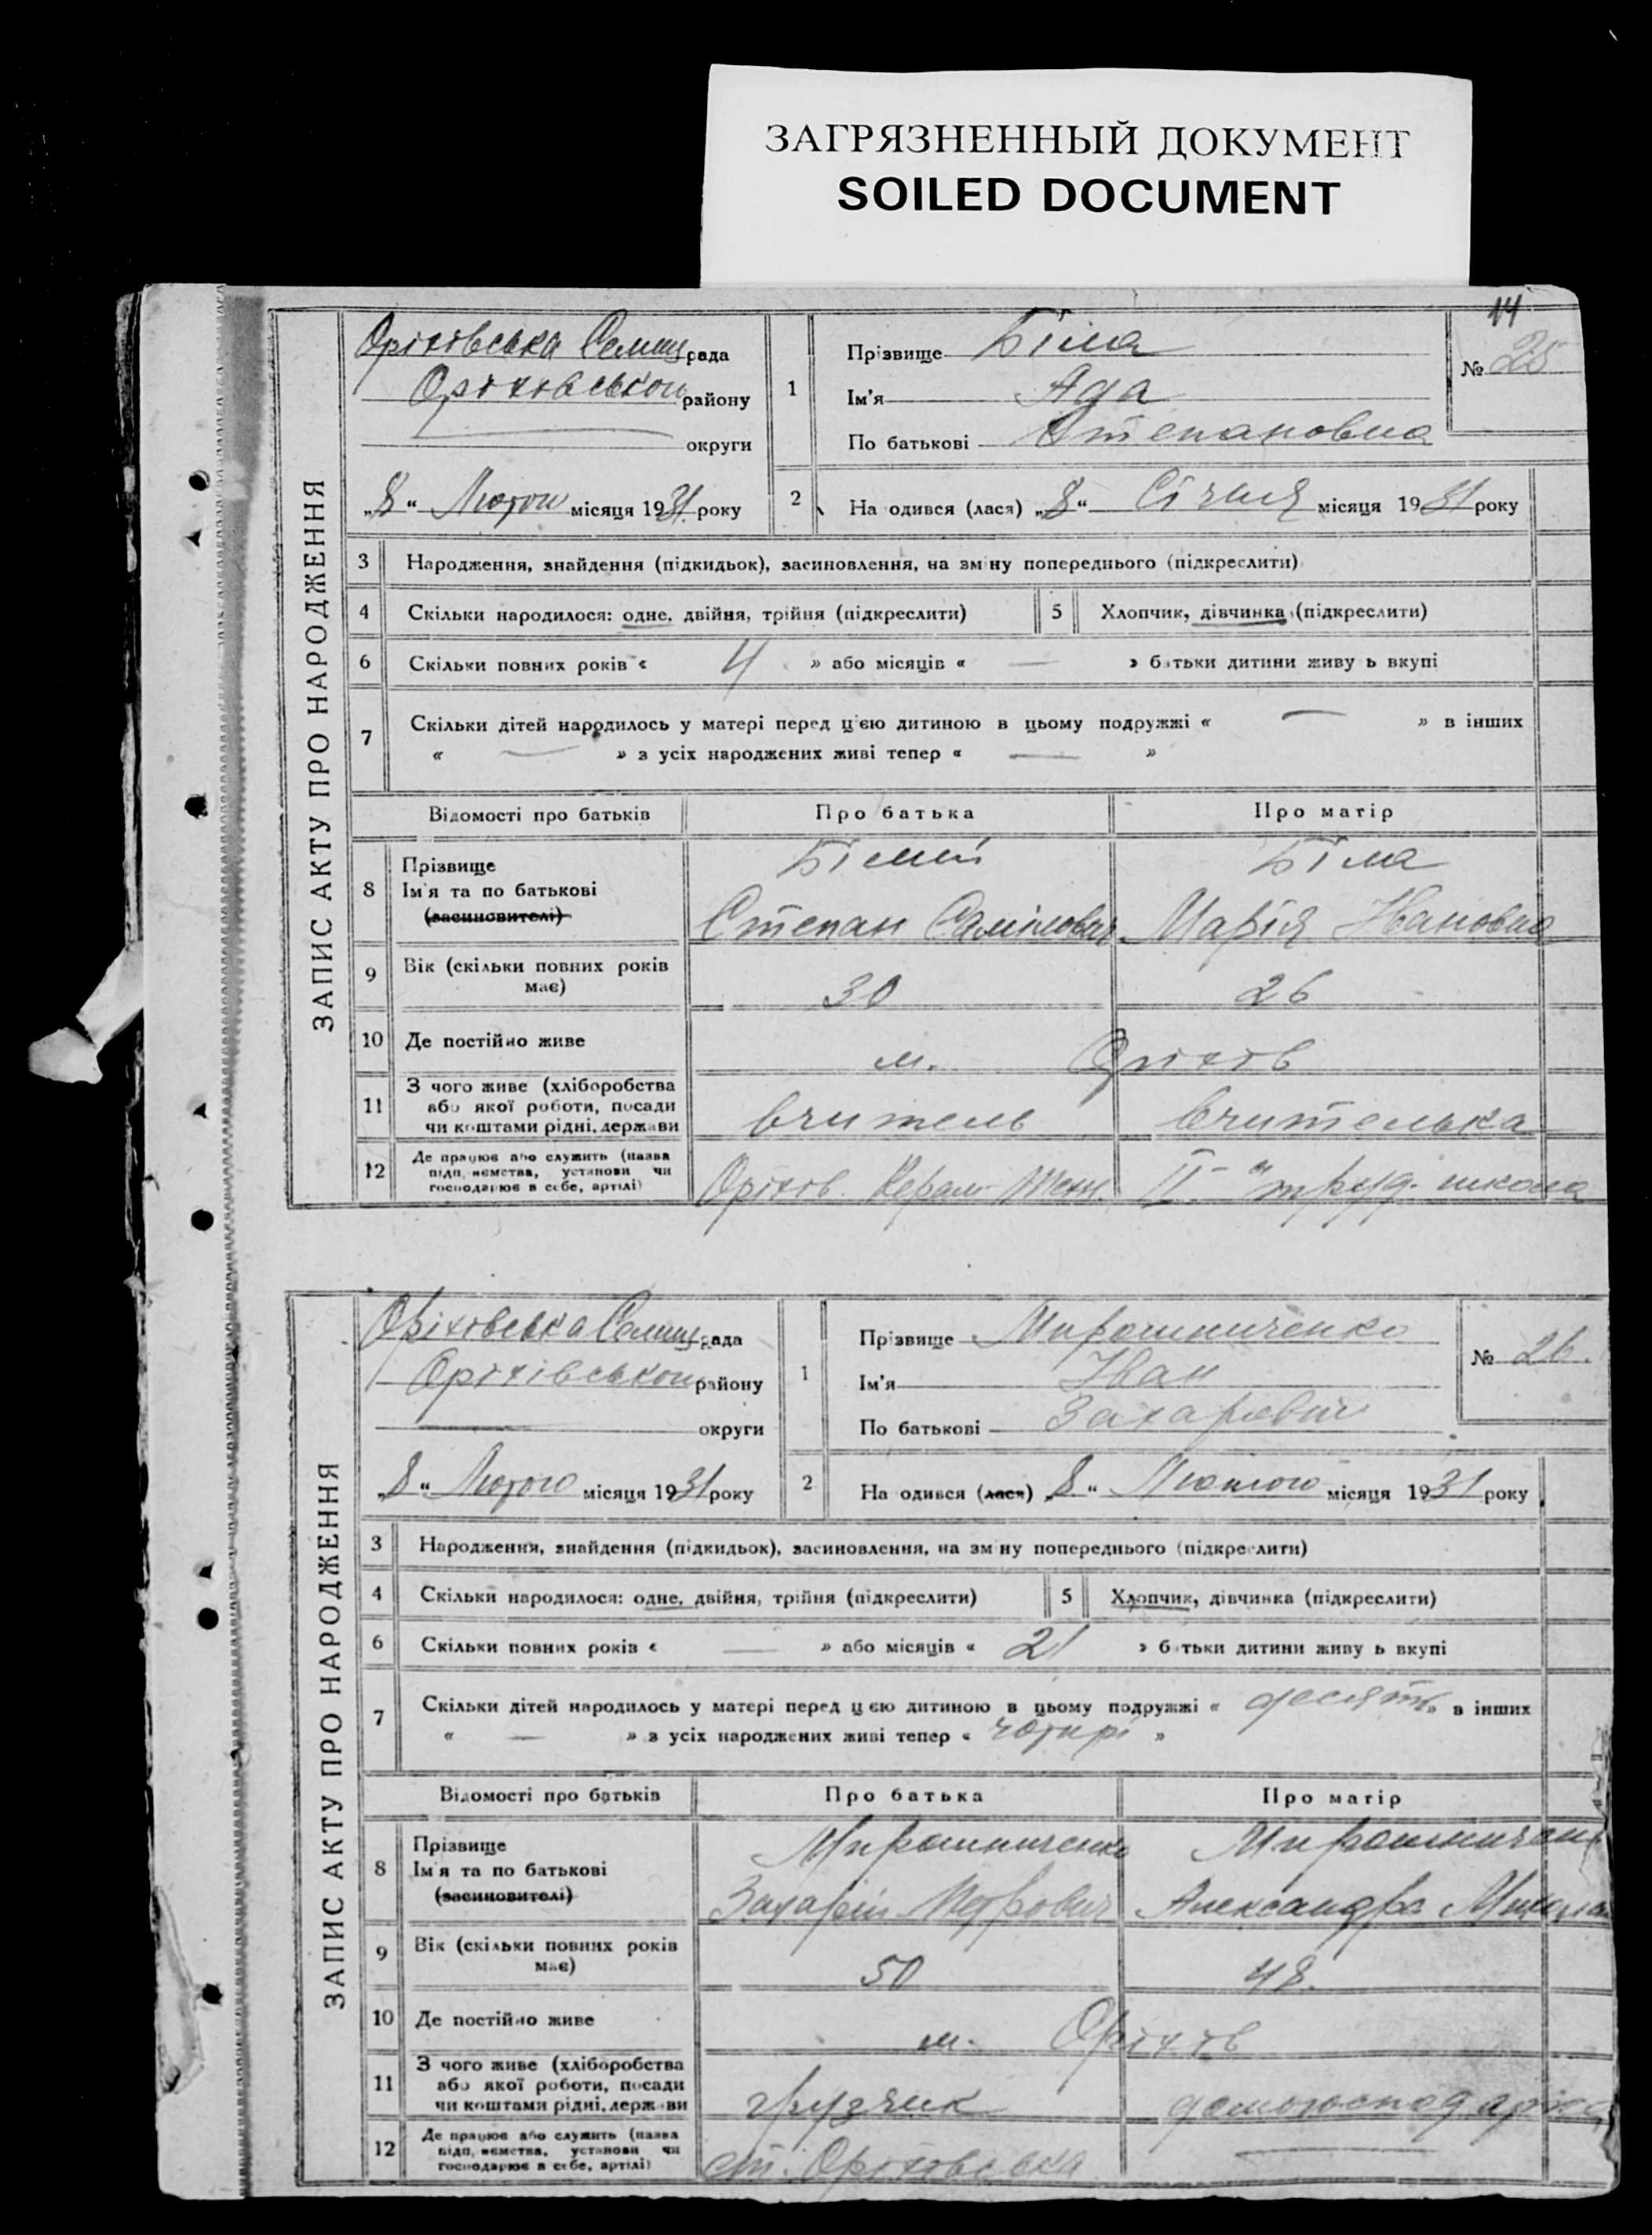 ЗАГРЯЗНЕННЫЙ ДОКУМЕНТ
SOILED DOCUMENT
14
ЗАПИС АКТУ ПРО НАРОДЖЕННЯ
Оріхівська Селищ рада
Оріхівськои району
округи
„8“ Лютого місяця 1931 року
1
Прізвище Біла
Ім'я Ада
По батькові Степановна
№ 25
2 На одився (лася) „8“ Січня місяця 1931 року
3 Народження, знайдення (підкидьок), засиновлення, на зм ну попереднього (підкреслити)
4 Скільки народилося: одне, двійня, трійня (підкреслити) 5 Хлопчик, дівчинка (підкреслити)
6 Скільки повних років « 4 » або місяців « — » батьки дитини живу ь вкупі
7 Скільки дітей народилось у матері перед ц'єю дитиною в цьому подружжі « — » в інших
« — » з усіх народжених живі тепер « — »
Відомості про батьків Про батька Про матір
8 Прізвище Білий Біла
Ім'я та по батькові
(засиновителі) Степан Самілович Марія Ивановна
9 Вік (скільки повних років має) 30 26
10 Де постійно живе м. Оріхів
11 З чого живе (хліборобства
або якої роботи, посади
чи коштами рідні, держави вчитель вчителька
12 Де працює або служить (назва
підп, ємства, установи чи
господарює в себе, артілі) Оріхів. Керам. Техн. II-а труд. школа
ЗАПИС АКТУ ПРО НАРОДЖЕННЯ
Оріхівська Селищ рада
Оріхівськои району
округи
„8“ Лютого місяця 1931 року
1
Прізвище Мирошниченко
Ім'я Иван
По батькові Захарієвич
№ 26.
2 На одився (лася) „8“ Лютого місяця 1931 року
3 Народження, знайдення (підкидьок), засиновлення, на зм ну попереднього (підкреслити)
4 Скільки народилося: одне, двійня, трійня (підкреслити) 5 Хлопчик, дівчинка (підкреслити)
6 Скільки повних років « — » або місяців « 21 » батьки дитини живу ь вкупі
7 Скільки дітей народилось у матері перед ц єю дитиною в цьому подружжі « десять » в інших
« — » з усіх народжених живі тепер « чотирі »
Відомості про батьків Про батька Про матір
8 Прізвище Мирошниченко Мирошничен
Ім'я та по батькові
(засиновителі) Захарій Петрович Александра
9 Вік (скільки повних років має) 50 48.
10 Де постійно живе м. Оріхів
11 З чого живе (хліборобства
або якої роботи, посади
чи коштами рідні, держави грузчик
12 Де працює або служить (назва
підп, ємства, установи чи
господарює в себе, артілі) ст. Оріхівська —